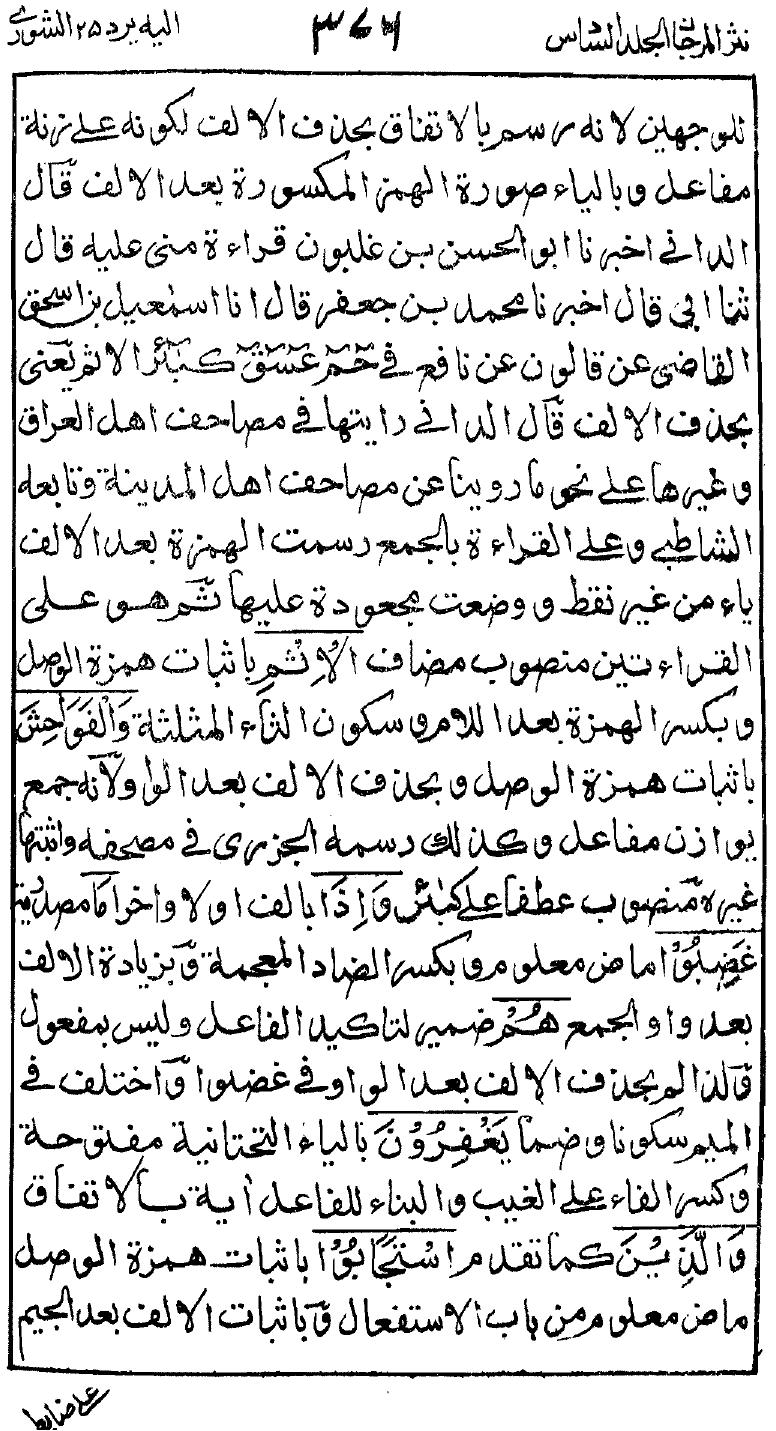 نثر المرجان الجلد السادس ٣٤٦ اليه يرد ٢٥ الشورى
للوجهين لانه رسم بالاتفاق بحذف الالف لكونه على زنة
مفاعل وبالياء صورة الهمز المكسورة بعد الالف قال
الداني اخبرنا ابوالحسن بن غلبون قراءة مني عليه قال
ثنا ابي قال اخبرنا محمد بن جعفر قال انا اسمعيل بن اسحق
القاضى عن قالون عن نافع في حٓمٓ عٓسٓقٓ كبئر الاثم يعنى
بحذف الالف قال الداني رايتها في مصاحف اهل العراق
وغيرها على نحو ما روينا عن مصاحف اهل المدينة وتابعه
الشاطبي وعلى القراءة بالجمع رسمت الهمزة بعد الالف
ياء من غير نقط ووضعت مجعودة عليها ثم هو على
القراءتين منصوب مضاف الْاِثْمِ باثبات همزة الوصل
وبكسر الهمزة بعد اللام وسكون الثاء المثلثة وَالْفَوَاحِشَ
باثبات همزة الوصل وبحذف الالف بعد الواو لانه جمع
يوازن مفاعل وكذلك رسمه الجزرى في مصحفه واثبتها
غيره منصوب عطفا على كبئر وَاِذَا بالف اولا واخرا مَا مصدرية
غَضِبُوْا ماض معلوم وبكسر الضاد المعجمة وبزيادة الالف
بعد واو الجمع هُمْ ضمير لتاكيد الفاعل وليس بمفعول
ولذا لم يحذف الالف بعد الواو في غضبوا واختلف في
الميم سكونا وضما يَغْفِرُوْنَ بالياء التحتانية مفتوحة
وكسر الفاء على الغيب والبناء للفاعل اية بالاتفاق
وَالَّذِيْنَ كما تقدم اسْتَجَابُوْا باثبات همزة الوصل
ماض معلوم من باب الاستفعال وباثبات الالف بعد الجيم
على ضابط